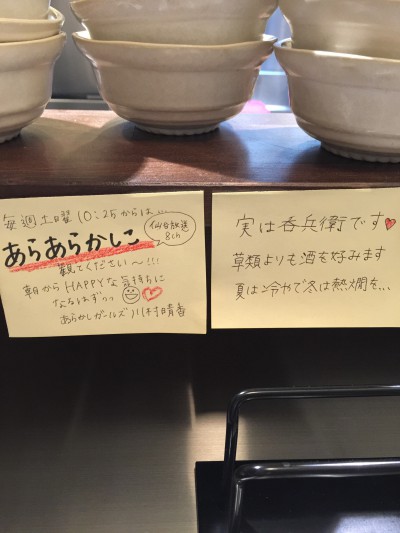 毎週土曜10:25からは…
あらあらかしこ
仙台放送
8ch
観てください〜!!!
朝からHAPPYな気持ちに
なるはずっっ
あらかしガールズ 川村晴香
実は呑兵衛です
草類よりも酒を好みます
夏は冷やで冬は熱燗を…